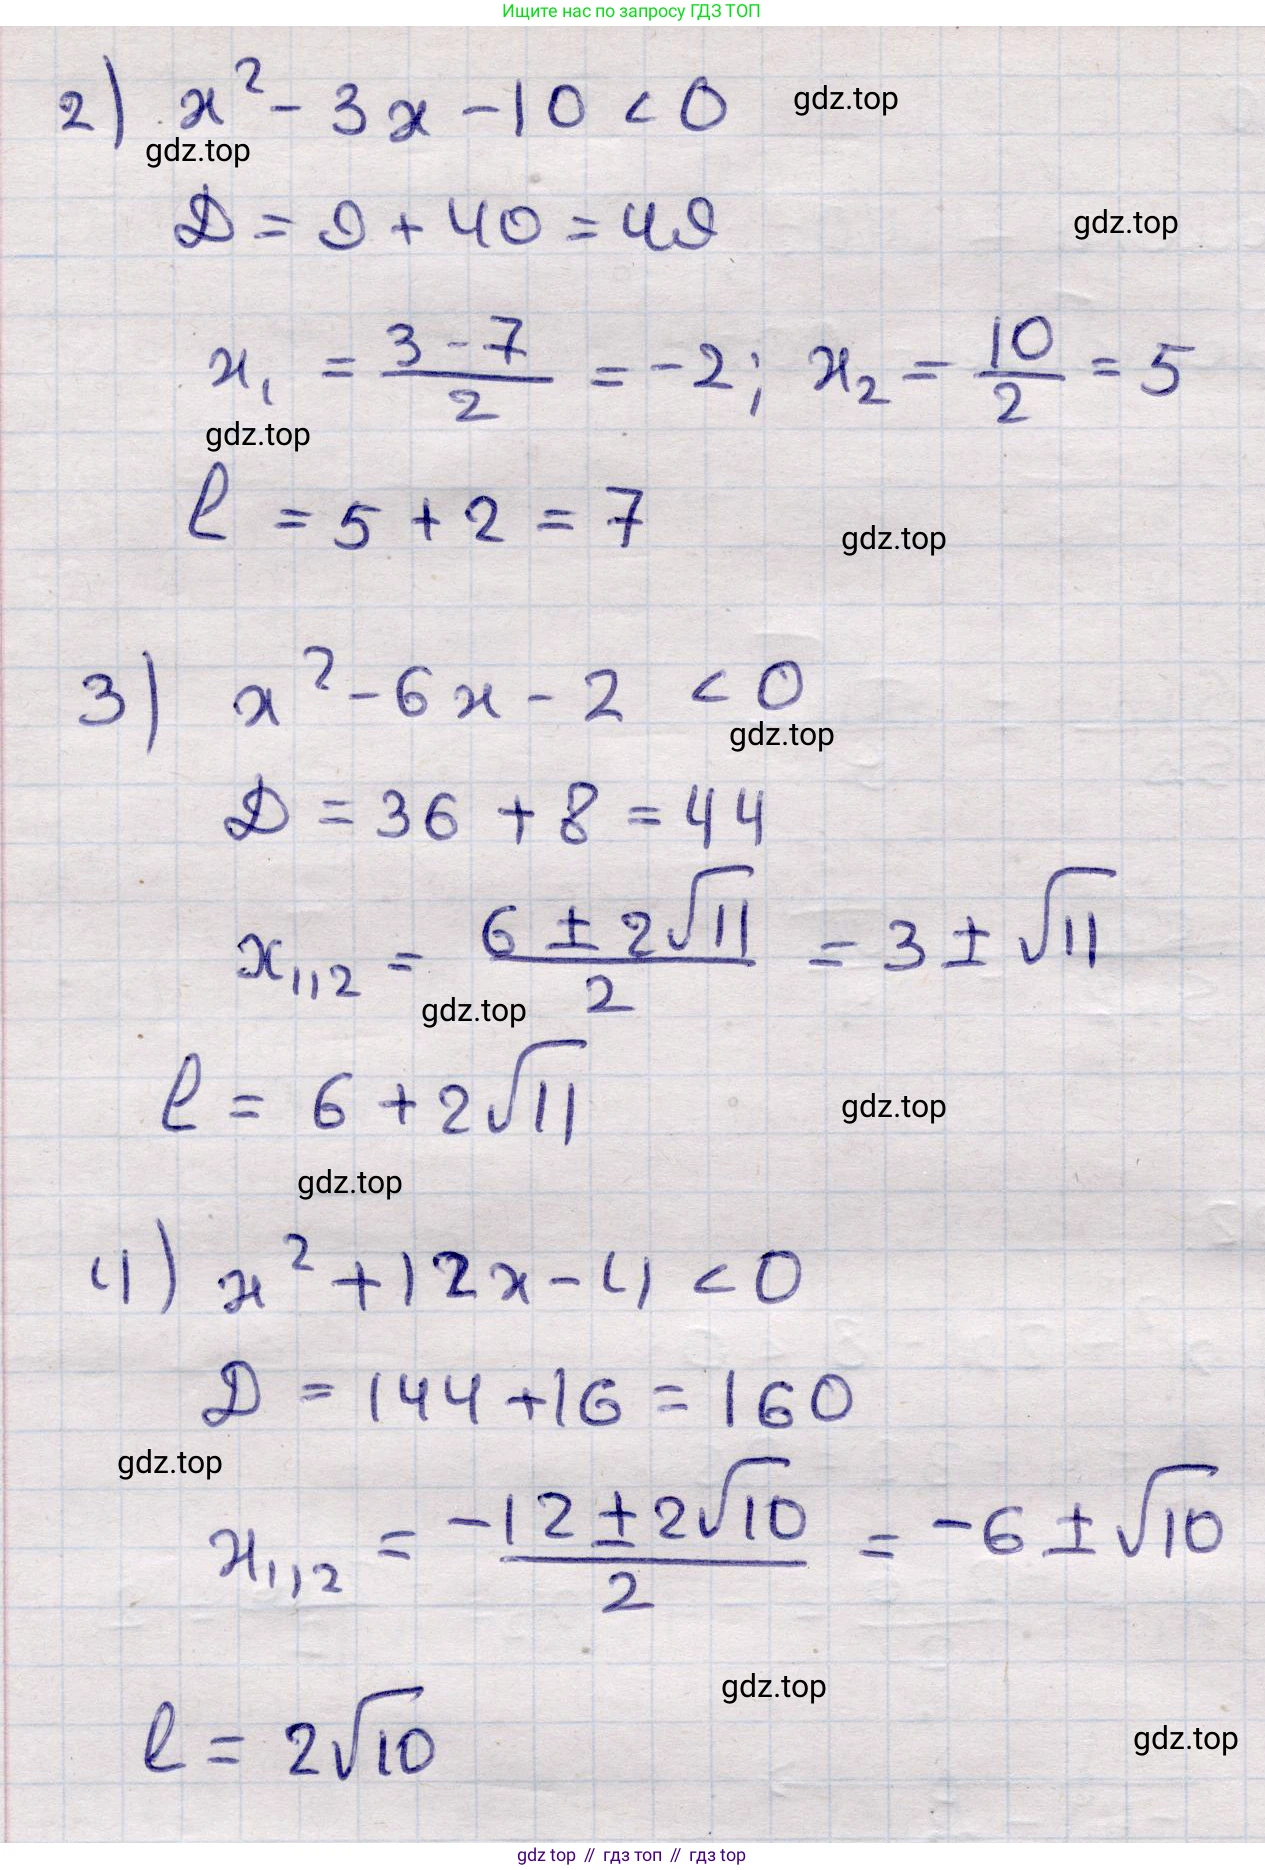 Ищите нас по запросу ГДЗ ТОП
2) x² - 3x - 10 < 0
gdz.top
gdz.top
D = 9 + 40 = 49
gdz.top
x₁ = (3 - 7)/2 = -2; x₂ = 10/2 = 5
gdz.top
l = 5 + 2 = 7
gdz.top
3) x² - 6x - 2 < 0
gdz.top
D = 36 + 8 = 44
x₁,₂ = (6 ± 2√11)/2 = 3 ± √11
gdz.top
l = 6 + 2√11
gdz.top
gdz.top
4) x² + 12x - 4 < 0
D = 144 + 16 = 160
gdz.top
x₁,₂ = (-12 ± 2√10)/2 = -6 ± √10
gdz.top
l = 2√10
gdz.top
gdz top // гдз топ // гдз top